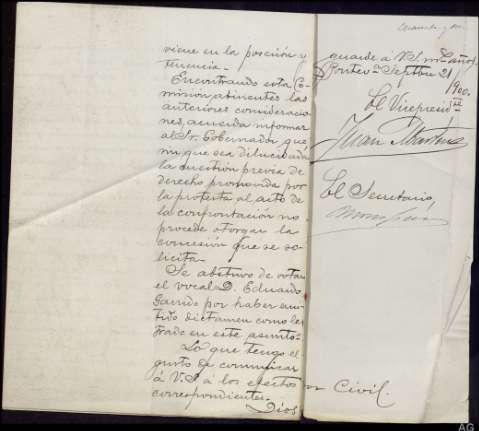 viene en la posesión y
tenencia.
Encontrando esta Co-
mision atinentes las
anteriores consideracio-
nes, acuerda informar
al Sr. Gobernador que
sin que sea dilucidada
la cuestión previa de
derecho promovida por
la protesta al acto de
la confrontación no
procede otorgar la
concesión que se so-
licita.
Se abstuvo de votar
el vocal D. Eduardo
Garrido por haber emi-
tido dictamen como le-
trado en este asunto.
Lo que tengo el
gusto de comunicar
á V.S. á los efectos
correspondientes.
Dios
guarde á V.S. ms. años.
Pontevª Septbre 21/900.
El Vicepresite
Juan
El Secretario
Civil.
AG